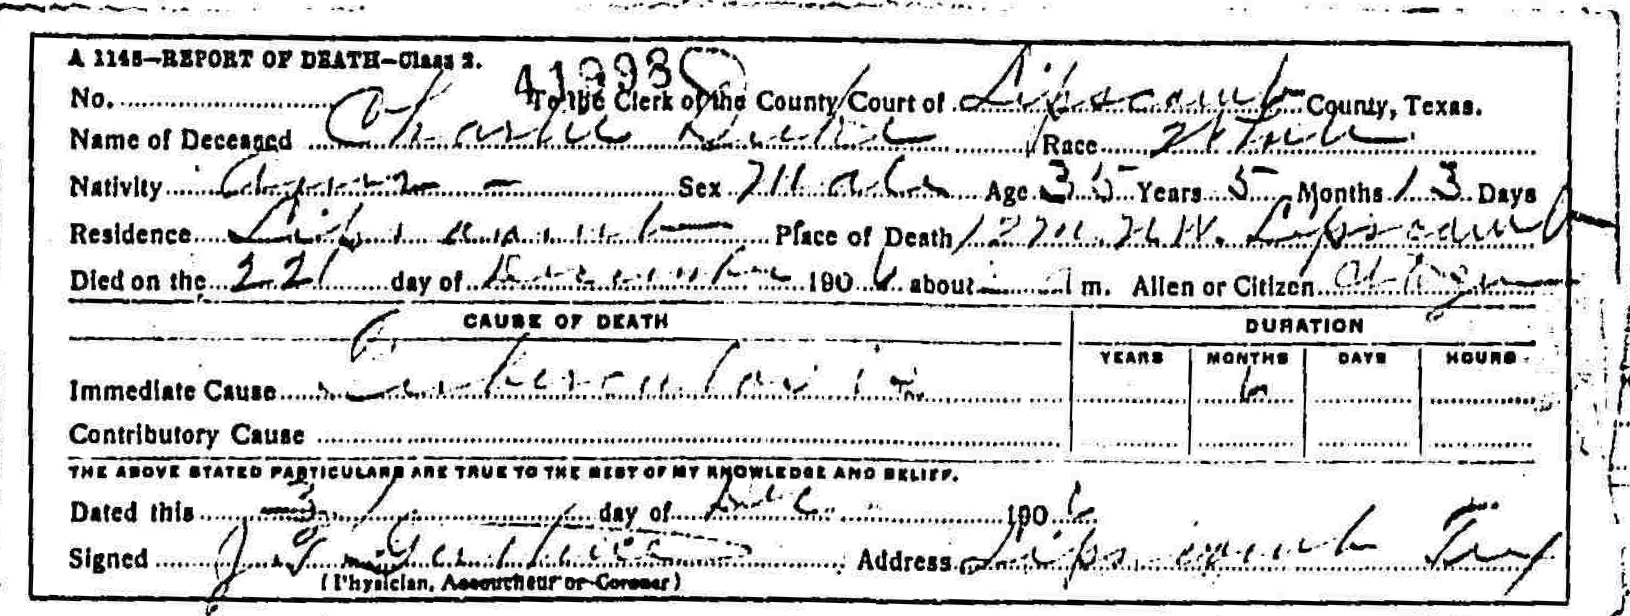 A 1145—REPORT OF DEATH—Class 2.
No. 41993 To the Clerk of the County Court of Lipscomb County, Texas.
Name of Deceased Charlie Duke Race White
Nativity Sex Male Age 35 Years 5 Months 13 Days
Residence Lipscomb Place of Death 12 m. N.W. Lipscomb
Died on the 22 day of December 1906 about m. Alien or Citizen Citizen
CAUSE OF DEATH DURATION
YEARS MONTHS DAYS HOURS
Immediate Cause Tuberculosis 6
Contributory Cause
THE ABOVE STATED PARTICULARS ARE TRUE TO THE BEST OF MY KNOWLEDGE AND BELIEF.
Dated this day of Dec 1906
Signed Address Lipscomb Tex
(Physician, Accoucheur or Coroner)